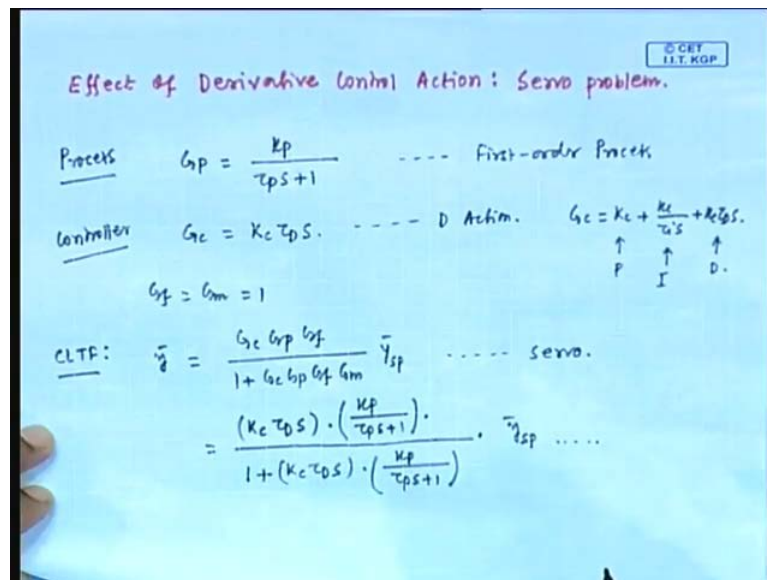 © CET
I.I.T. KGP
Effect of Derivative Control Action : Servo problem.
Process Gp = Kp / (τps+1) ---- First-order Process
Controller Gc = Kc τD s. ----- D Action. Gc = Kc + Kc/(τi s) + Kc τD s.
P I D.
Gf = Gm = 1
CLTF : ȳ = (Gc Gp Gf) / (1 + Gc Gp Gf Gm) ȳsp ..... servo.
= (Kc τD s) · (Kp/(τps+1)) · / (1 + (Kc τD s) · (Kp/(τps+1))) · ȳsp .....